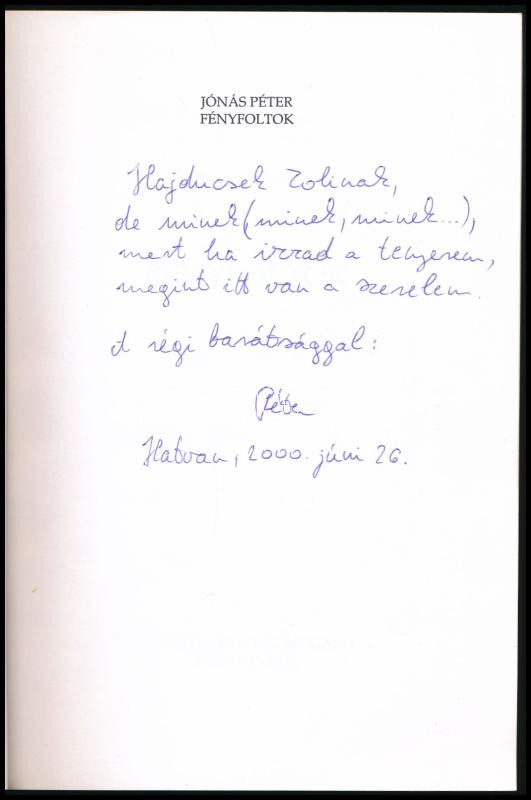 JÓNÁS PÉTER
FÉNYFOLTOK
Hajducsek Zolinak,
de minek (minek, minek...),
mert ha izzad a tenyerem,
megint itt van a szerelem.
A régi barátsággal:
Péter
Hatvan, 2000. júni 26.